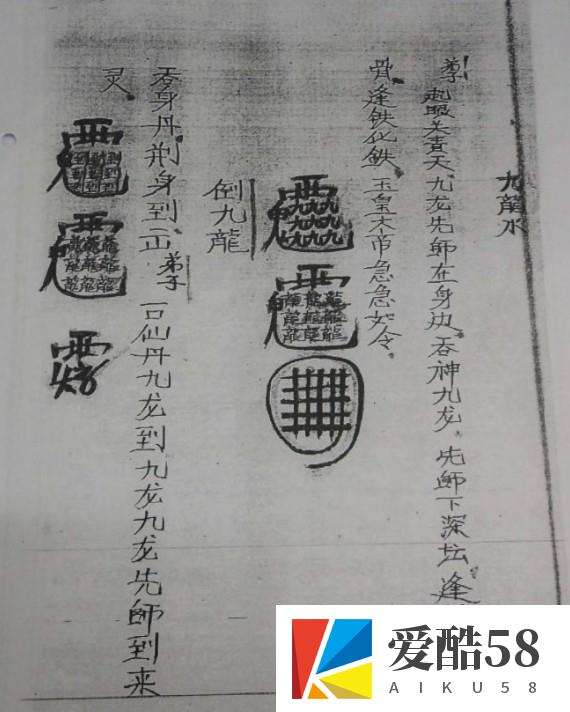 九龍水
尊 起眼关青天九龙先師在身边吞神九龙。先師下深坛逢
骨逢铁化鉄玉皇大帝急急如令。
倒九龍
吞身丹荆身到 弟子 一口仙丹九龙到九龙九龙先師到来
灵
爱酷58
AIKU58